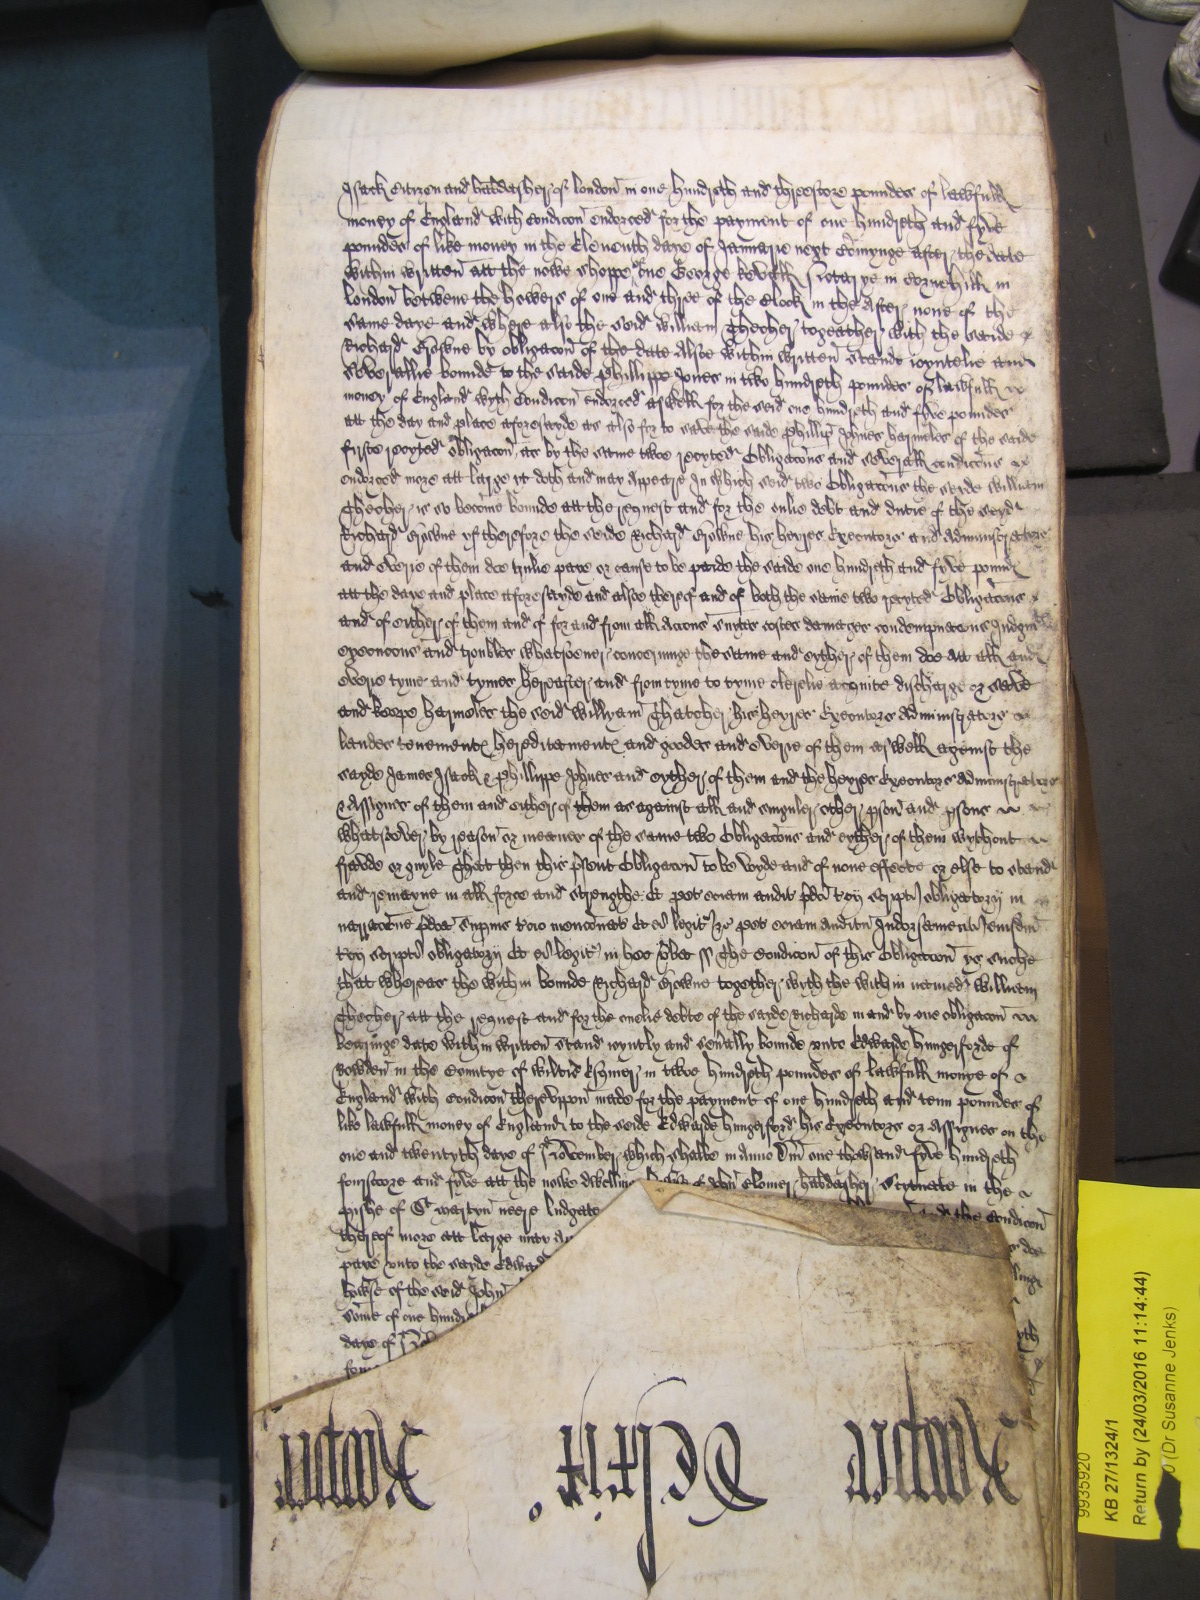 Isack Citizen and habdasher of london in one hundreth and threescore poundes of lawfull
money of England with Condicon endorced for the payment of one hundreth and fyve
poundes of like money in the Eleventh daye of Januarie next Comynge after the date
within written att the nowe shoppe of one George kevall Notarye in Cornehill in
london betwene the howers of one and three of the Clock in the After none of the
same daye and where also the seid william Thecher togeather with the saide
Richard by obligacon of the date Alsoe within written stande ioyntelie and
Severallie bounde to the saide Phillippe Jones in two hundreth poundes of lawfull
money of England wyth Condicon endorced aswell for the seid one hundreth and fyve poundes
att the day and place aforesayde as also for to save the saide Phillip Johnes harmeles of the saide
firste recyted Obligacon as by the same twoe recyted Obligacons and severall condicons
endorced more att large yt doth and may Appeare In which seid two Obligacons the seyde william
Thecher is so become bounde att the request and for the onlie debt and dutie of the seyd
Richard yf therefore the seide Richard his heyres Executors and Administrators
and everie of them doe trulie paye or cause to be paide the saide one hundreth and fyve pound
att the daye and place aforesayde and alsoe thereof and of both the same two recyted Obligacons
and of either of them and of for and from all Accons suytes costes damages condempnacons Judgm
execucons and troubles whatsoever concerninge the same and eyther of them doe att all and
everie tyme and tymes hereafter and from tyme to tyme clerelie acquite discharge or save
and keepe harmeles the seid willyam Thatcher his heyres Executors Administrators
landes tenement hereditament and goodes and everie of them aswell against the
sayde James Isack & Phillippe Johnes and eyther of them and the heyres Executors Administrators
& Assignes of them and either of them as against all and singuler other pson and psons
whatsoever by reason or meanes of the same two Obligacons and eyther of them wythout
frawde or guyle Thatt then this psent Obligacon to be voyde and of none effecte or else to stand
and remayne in all force and strengthe Et pet eciam audit pdci scripti obligatorij in
narracone pdca supius mencionat Et ei legit pet eciam auditu Indorsamenti eiusdm
scripti obligatorij Et ei legit in hec verba ss The Condicon of this Obligacon ys suche
that whereas the within bounde Richard together wyth the within named William
Thecher att the request and for the onelie debte of the sayde Richarde in and by one obligacon
bearinge date within written stand ioyntly and sevally bounde unto Edwarde hungerforde of
Rowden in the Countye of wiltes Esquier in twoe hundreth poundes of lawfull monye of
England with Condicon thereuppon made for the payment of one hundreth and tenn poundes of
like lawfull money of England to the seide Edwarde hungerford his Executors or Assignes on the
one and twentyth daye of November which shalbe in anno Dm one thowsand fyve hundreth
fourscore and fyve att the nowe dwellinge howse of John habdasher Scytuate in the
pishe of St martyn neere ludgate and the Condicon
thereof more att large may
paye unto the sayde Edward
howse of the seid John
some of one hundre
daye of
KB 27/1324/1
Return by (24/03/2016 11:14:44)
(Dr Susanne Jenks)
9935920